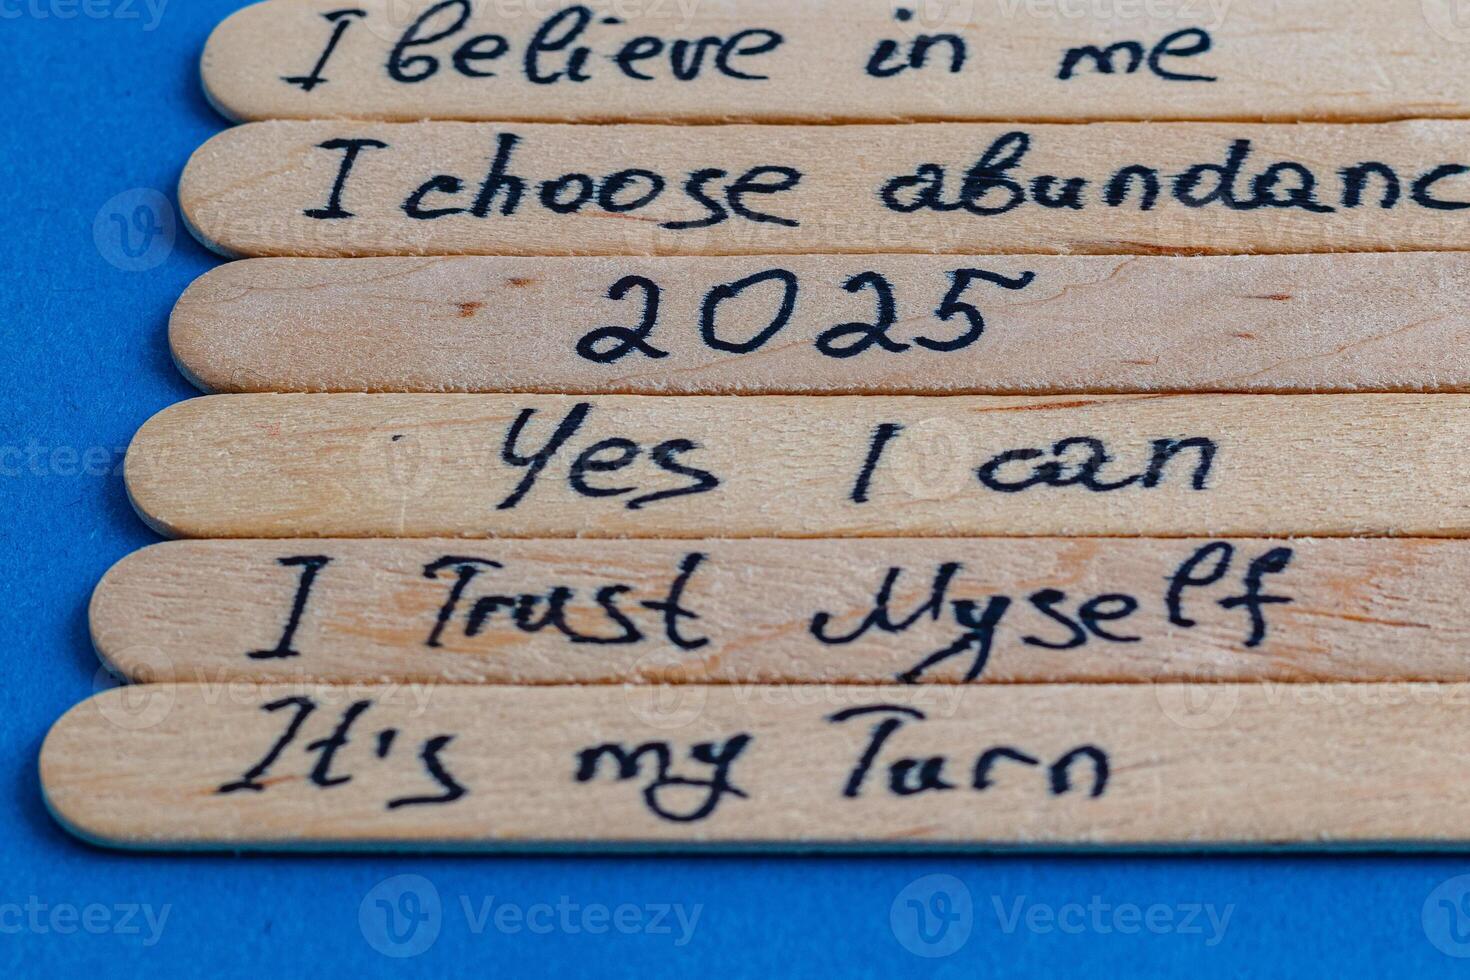 I believe in me
I choose abundanc
2025
Yes I can
I Trust Myself
It's my Turn
Vecteezy
Vecteezy